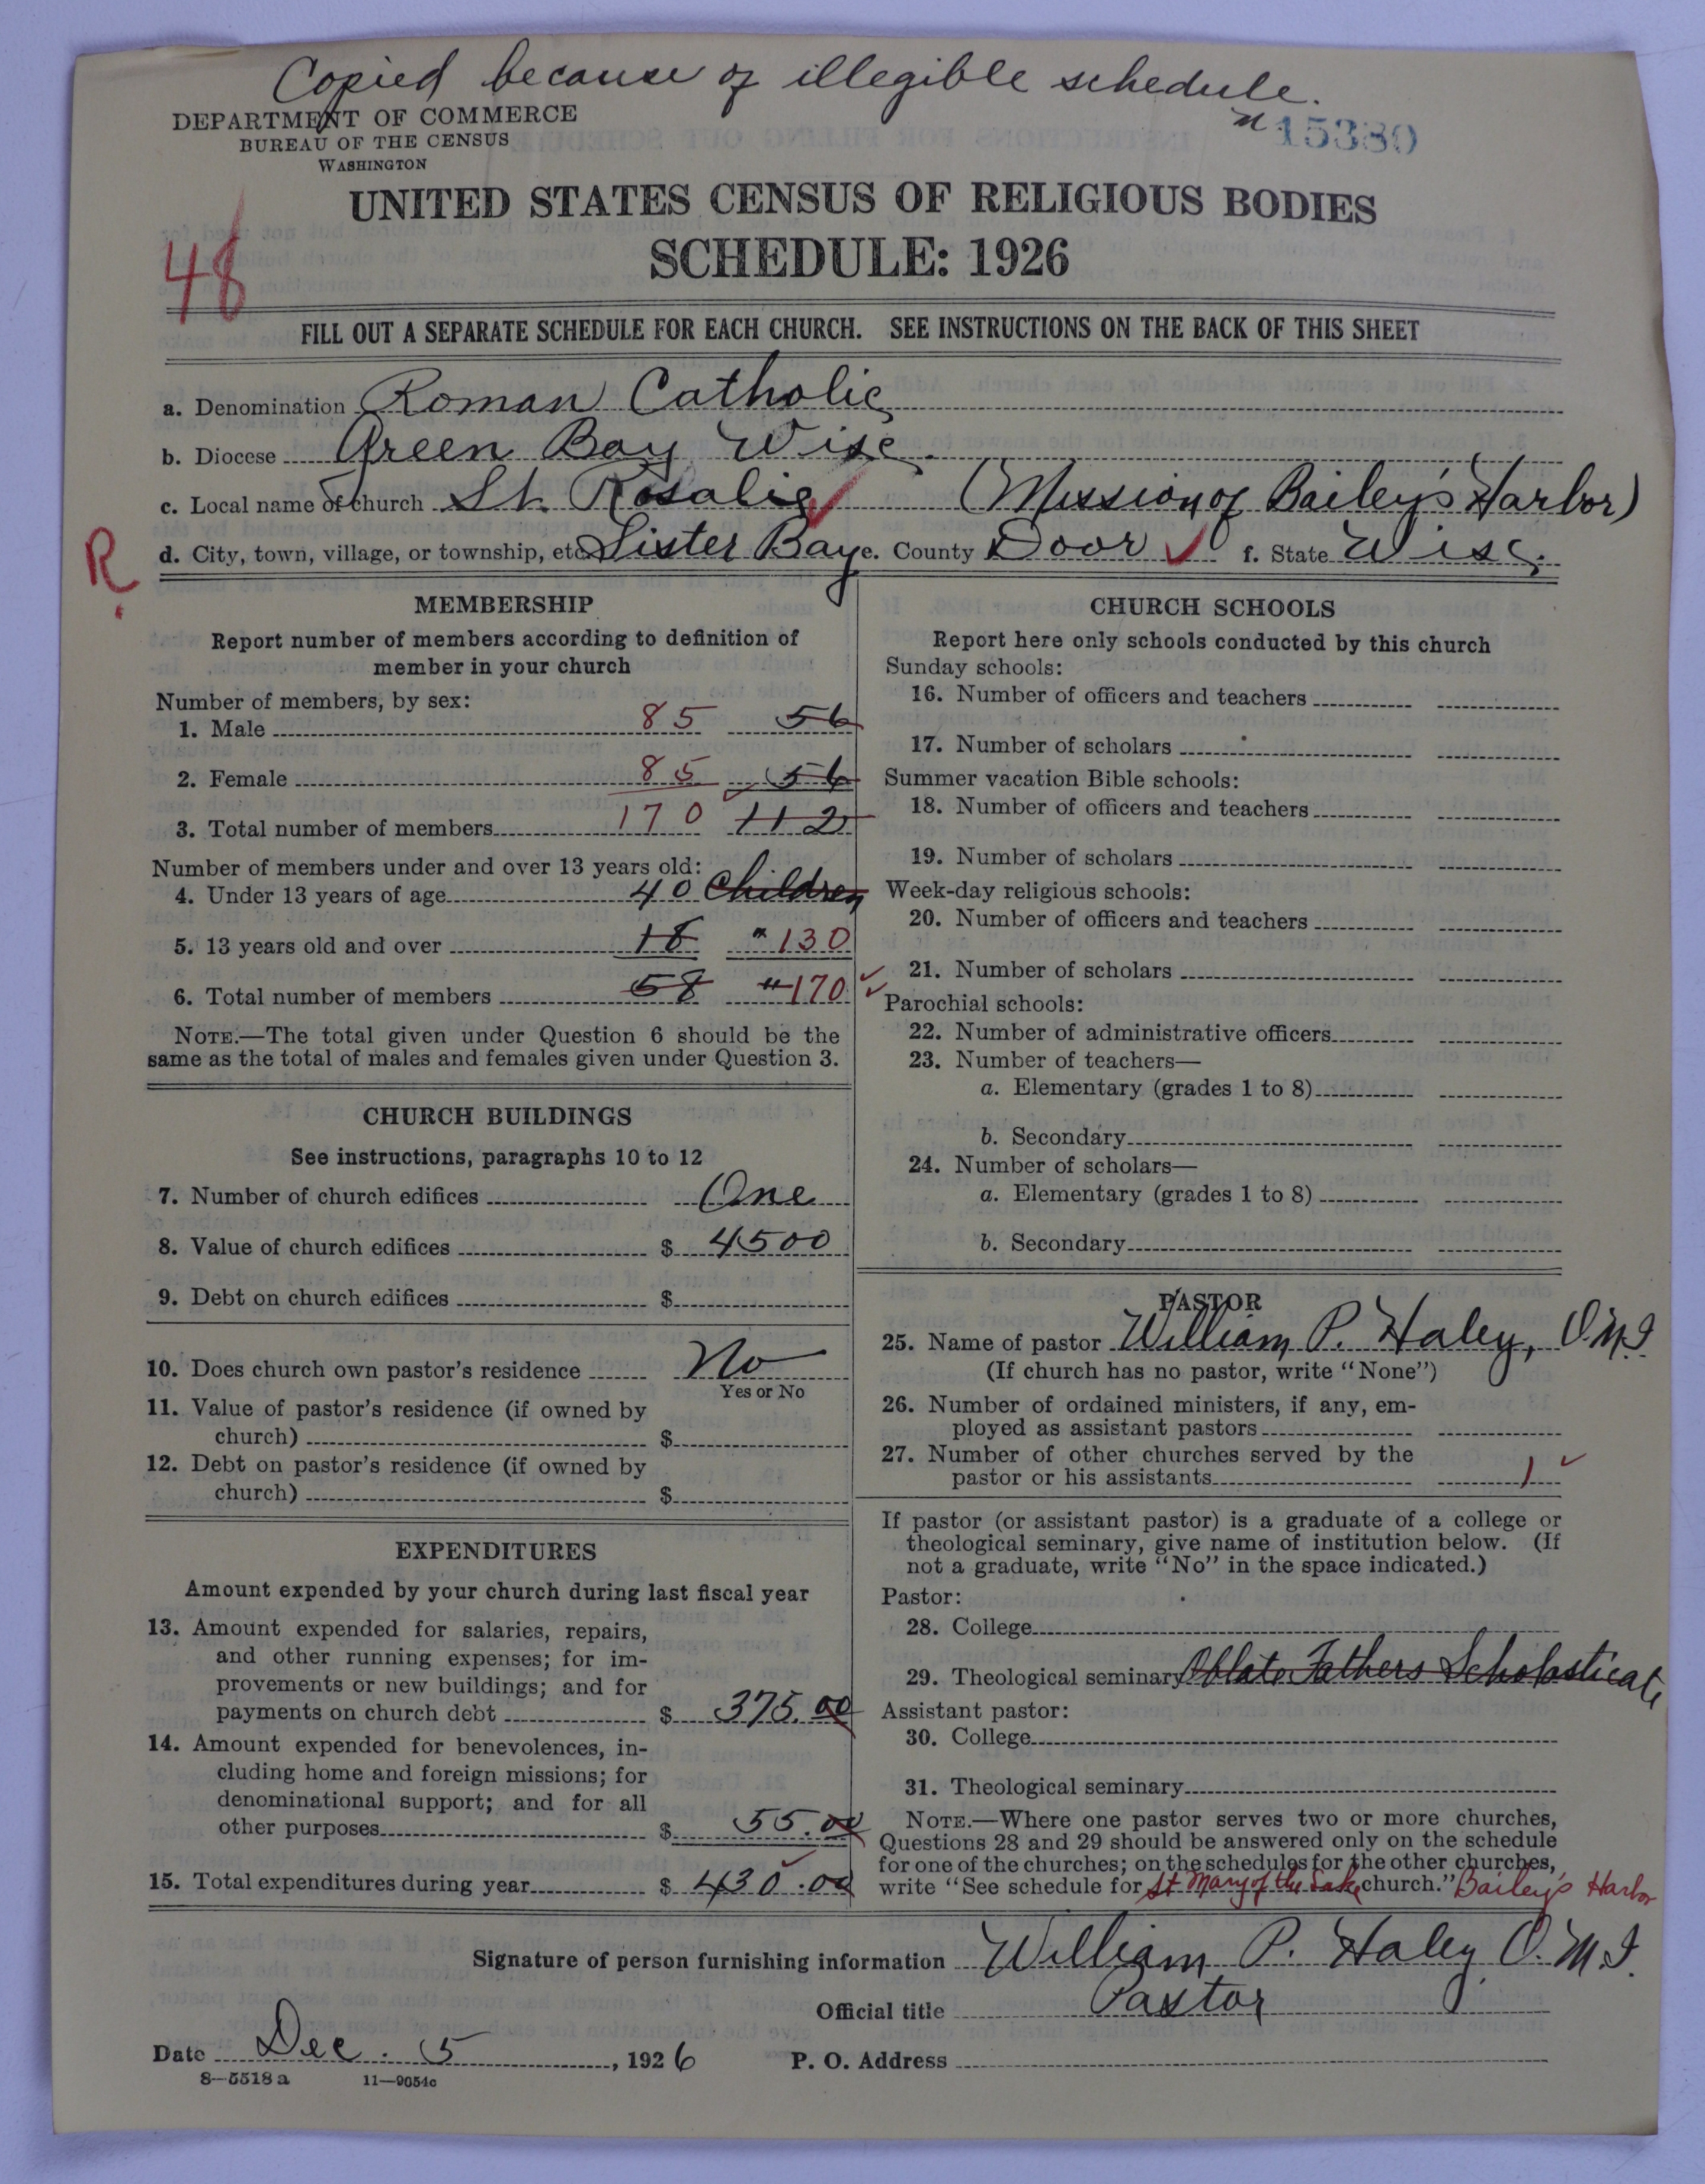 Copied because of illegible schedule.
DEPARTMENT OF COMMERCE
BUREAU OF THE CENSUS
WASHINGTON
15380
UNITED STATES CENSUS OF RELIGIOUS BODIES
SCHEDULE: 1926
48
FILL OUT A SEPARATE SCHEDULE FOR EACH CHURCH. SEE INSTRUCTIONS ON THE BACK OF THIS SHEET
a. Denomination Roman Catholic
b. Diocese Green Bay Wisc.
c. Local name of church St. Rosalie (Mission of Bailey's Harbor)
R.
d. City, town, village, or township, etc. Sister Bay e. County Door f. State Wisc.
MEMBERSHIP
Report number of members according to definition of
member in your church
Number of members, by sex:
1. Male 85 56
2. Female 85 56
3. Total number of members 170 112
Number of members under and over 13 years old:
4. Under 13 years of age 40 Children
5. 13 years old and over 18 " 130
6. Total number of members 58 " 170
NOTE.—The total given under Question 6 should be the
same as the total of males and females given under Question 3.
CHURCH BUILDINGS
See instructions, paragraphs 10 to 12
7. Number of church edifices One
8. Value of church edifices $ 4500
9. Debt on church edifices $
10. Does church own pastor's residence No
Yes or No
11. Value of pastor's residence (if owned by
church) $
12. Debt on pastor's residence (if owned by
church) $
EXPENDITURES
Amount expended by your church during last fiscal year
13. Amount expended for salaries, repairs,
and other running expenses; for im-
provements or new buildings; and for
payments on church debt $ 375.00
14. Amount expended for benevolences, in-
cluding home and foreign missions; for
denominational support; and for all
other purposes $ 55.00
15. Total expenditures during year $ 430.00
CHURCH SCHOOLS
Report here only schools conducted by this church
Sunday schools:
16. Number of officers and teachers
17. Number of scholars
Summer vacation Bible schools:
18. Number of officers and teachers
19. Number of scholars
Week-day religious schools:
20. Number of officers and teachers
21. Number of scholars
Parochial schools:
22. Number of administrative officers
23. Number of teachers—
a. Elementary (grades 1 to 8)
b. Secondary
24. Number of scholars—
a. Elementary (grades 1 to 8)
b. Secondary
PASTOR
25. Name of pastor William P. Haley, O.M.I.
(If church has no pastor, write "None")
26. Number of ordained ministers, if any, em-
ployed as assistant pastors
27. Number of other churches served by the
pastor or his assistants 1
If pastor (or assistant pastor) is a graduate of a college or
theological seminary, give name of institution below. (If
not a graduate, write "No" in the space indicated.)
Pastor:
28. College
29. Theological seminary Oblate Fathers Scholasticate
Assistant pastor:
30. College
31. Theological seminary
NOTE.—Where one pastor serves two or more churches,
Questions 28 and 29 should be answered only on the schedule
for one of the churches; on the schedules for the other churches,
write "See schedule for St Mary of the Lake church." Bailey's Harbor
Signature of person furnishing information William P. Haley O.M.I.
Official title Pastor
Date Dec. 5, 1926 P. O. Address
8—5518 a 11—9054c